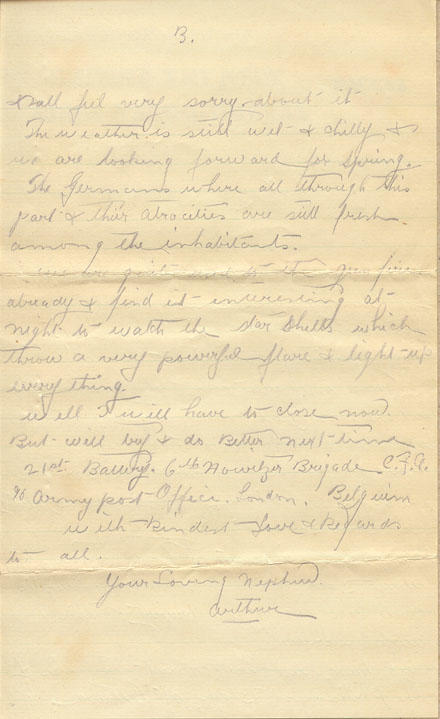 3.
& all feel very sorry about it
The weather is still wet & chilly &
we are looking forward for spring.
The Germans where all through this
part & their atrocities are still fresh
among the inhabitants.
we are quite used to the gun fire
already & find it interesting at
night to watch the star shells which
throw a very powerful flare & light up
every thing.
well I will have to close now.
But will try & do Better next time
21st Battery. 6th Howitzer Brigade C.F.A.
℅ Army post Office. London. Belgium
with kindest Love & Regards
to all.
Your Loving Nephew.
Arthur